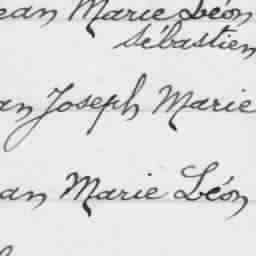 ean Marie Léon
Sébastien
an Joseph Marie
an Marie Léon